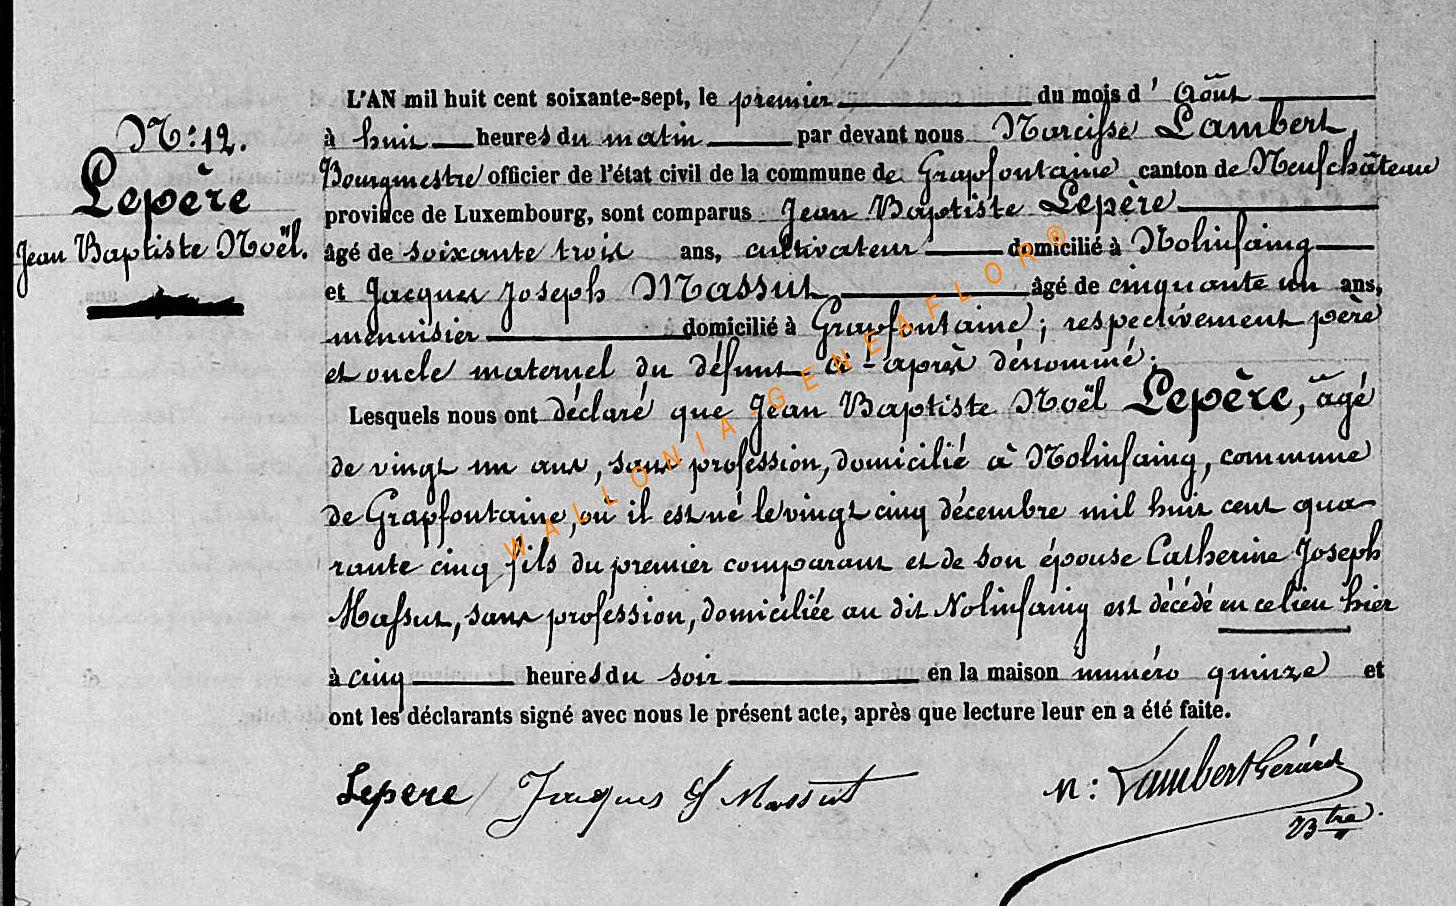 L'AN mil huit cent soixante-sept, le premier du mois d' Août
N.: 12. à huit heures du matin par devant nous Narcisse Lambert,
Bourgmestre officier de l'état civil de la commune de Grapfontaine canton de Neufchâteau
Lepère province de Luxembourg, sont comparus Jean Baptiste Lepère
Jean Baptiste Noël. âgé de soixante trois ans, cultivateur domicilié à Nolinfaing
et Jacques Joseph Massut, âgé de cinquante un ans,
menuisier domicilié à Grapfontaine; respectivement père
et oncle maternel du défunt ci-après dénommé;
Lesquels nous ont déclaré que Jean Baptiste Noël Lepère, âgé
de vingt un ans, sans profession, domicilié à Nolinfaing, commune
de Grapfontaine, où il est né le vingt cinq décembre mil huit cent qua-
rante cinq fils du premier comparant et de son épouse Catherine Joseph
Massut, sans profession, domiciliée au dit Nolinfaing est décédé en ce lieu hier
à cinq heures du soir en la maison numéro quinze et
ont les déclarants signé avec nous le présent acte, après que lecture leur en a été faite.
Lepere Jacques J Massut N: Lambert Gérard
Btre
WALLONIA-GENEAFLOR®